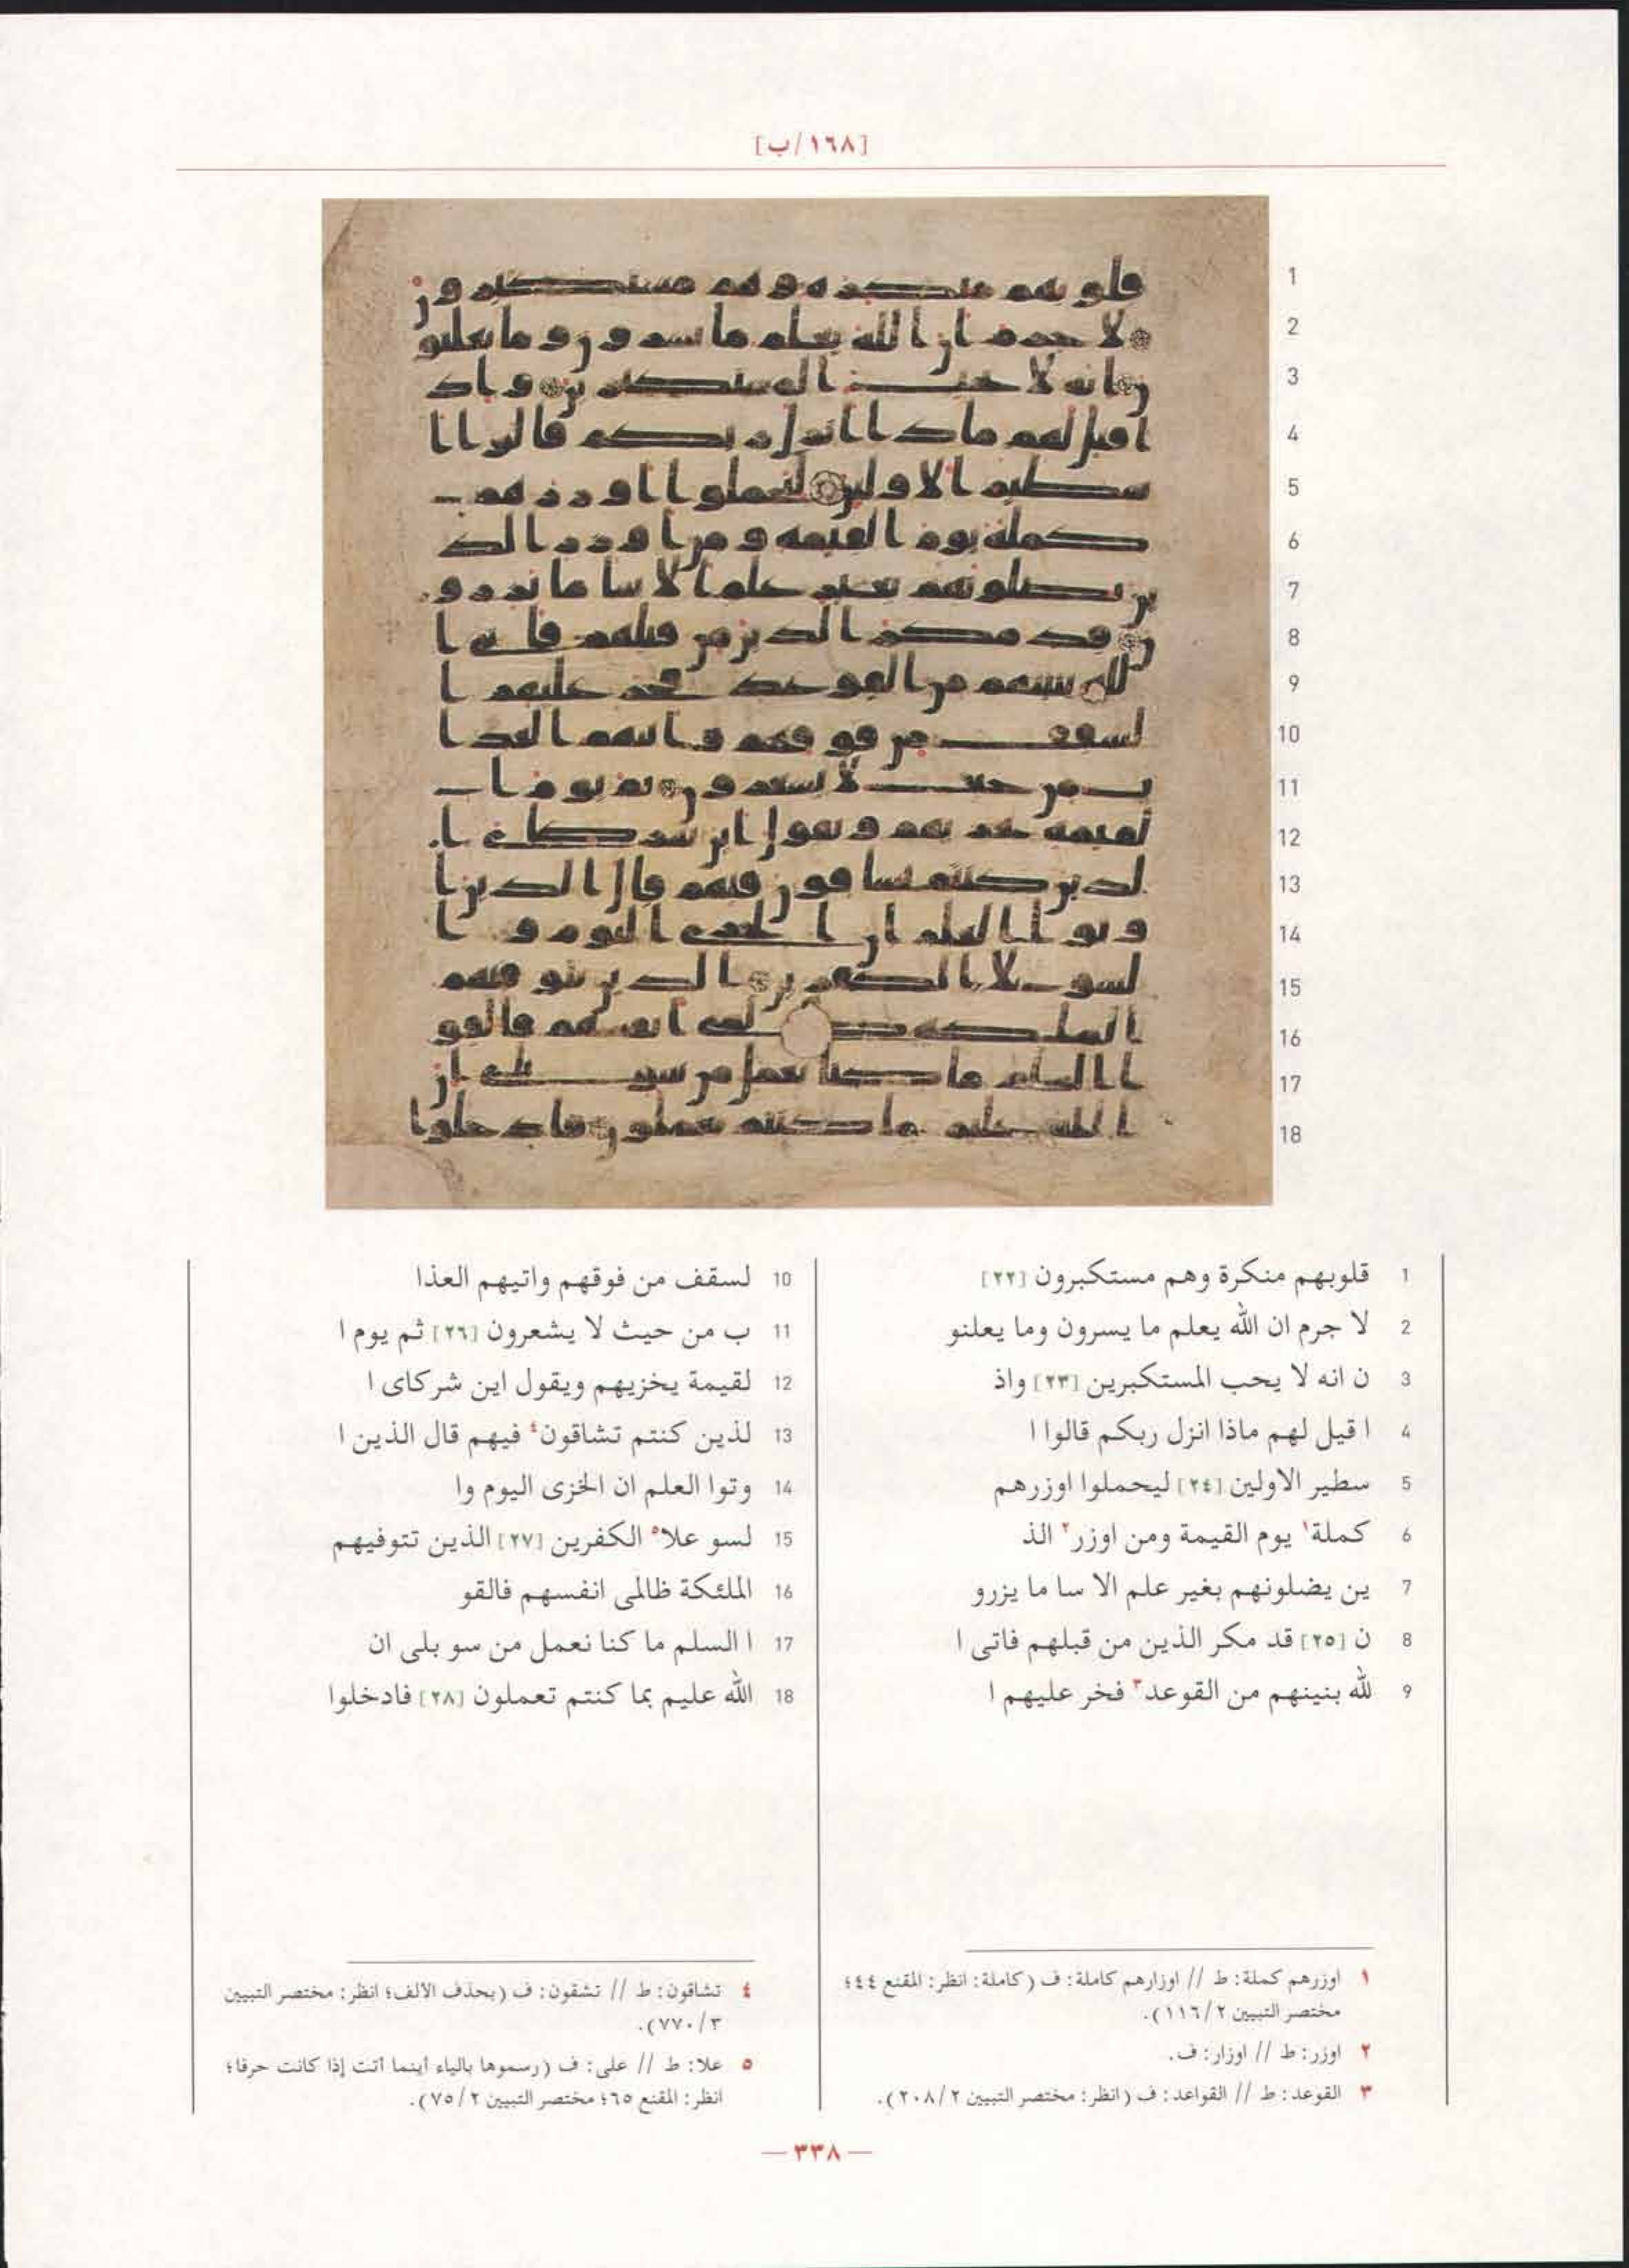 [١٦٨/ب]
1
2
3
4
5
6
7
8
9
10
11
12
13
14
15
16
17
18
1 قلوبهم منكرة وهم مستكبرون [٢٢]
2 لا جرم ان الله يعلم ما يسرون وما يعلنو
3 ن انه لا يحب المستكبرين [٢٣] واذ
4 ا قيل لهم ماذا انزل ربكم قالوا ا
5 سطير الاولين [٢٤] ليحملوا اوزرهم
6 كملة١ يوم القيمة ومن اوزر٢ الذ
7 ين يضلونهم بغير علم الا سا ما يزرو
8 ن [٢٥] قد مكر الذين من قبلهم فاتى ا
9 لله بنينهم من القوعد٣ فخر عليهم ا
10 لسقف من فوقهم واتيهم العذا
11 ب من حيث لا يشعرون [٢٦] ثم يوم ا
12 لقيمة يخزيهم ويقول اين شركاى ا
13 لذين كنتم تشاقون٤ فيهم قال الذين ا
14 وتوا العلم ان الخزى اليوم وا
15 لسو علا٥ الكفرين [٢٧] الذين تتوفيهم
16 الملئكة ظالمى انفسهم فالقو
17 ا السلم ما كنا نعمل من سو بلى ان
18 الله عليم بما كنتم تعملون [٢٨] فادخلوا
١ اوزرهم كملة: ط // اوزارهم كاملة: ف (كاملة: انظر: المقنع ٤٤؛
مختصر التبيين ١١٦/٢).
٢ اوزر: ط // اوزار: ف.
٣ القوعد: ط // القواعد: ف (انظر: مختصر التبيين ٢٠٨/٢).
٤ تشاقون: ط // تشقون: ف (بحذف الالف؛ انظر: مختصر التبيين
٧٧٠/٣).
٥ علا: ط // على: ف (رسموها بالياء أينما أتت إذا كانت حرفا؛
انظر: المقنع ٦٥؛ مختصر التبيين ٧٥/٢).
— ٣٣٨ —